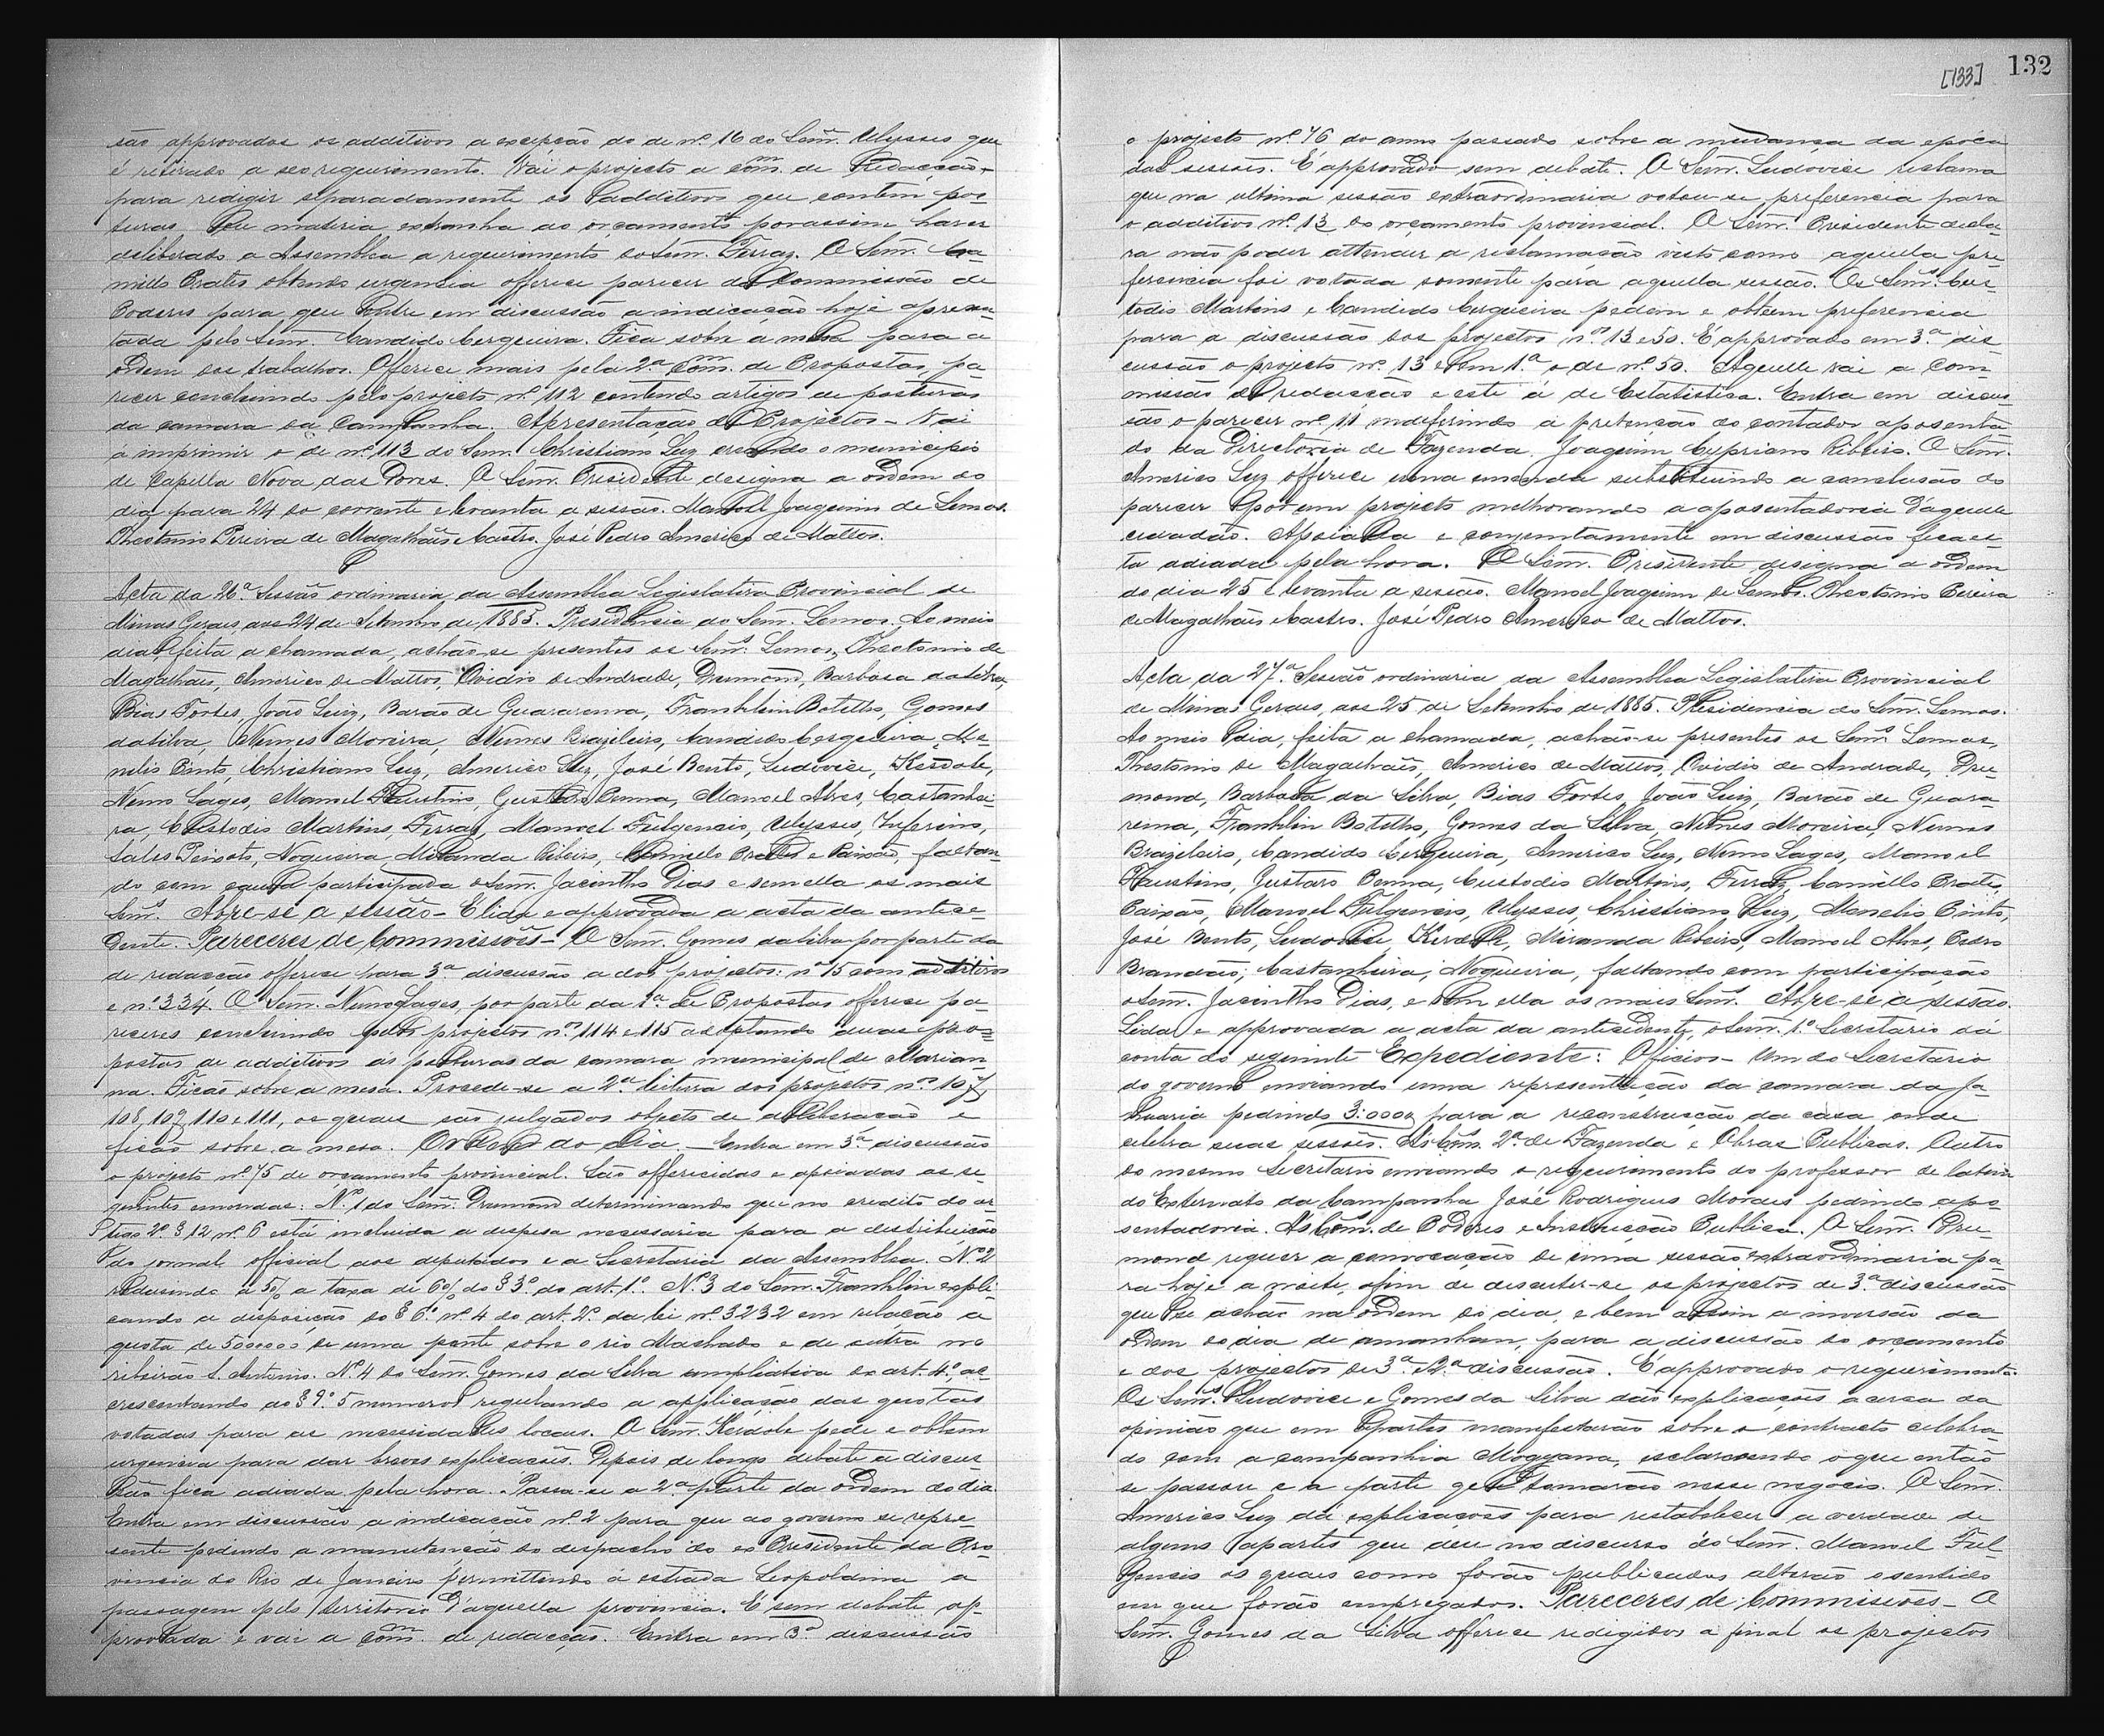 são approvados os additivos a excepção do de nº 16 do Senr. Ulysses que
é retirado a seo requerimento. Vai o projecto a Comm. de Redacção
para redigir separadamente os additivos que contêm pos-
turas ou materia extranha ao orçamento por assim haver
deliberado a Assemblea a requerimento do Senr. Ferraz. O Senr. Ca-
millo Prates obtendo urgencia offerece parecer da Commissão de
Poderes para que entre em discussão a indicação hoje apresen-
tada pelo Senr. Candido Cerqueira. Fica sobre a mesa para a
ordem dos trabalhos. Offerece mais pela 2ª Comm. de Propostas, pa-
recer concluindo pelo projecto nº 112 contendo artigos de posturas
da camara da Campanha. Apresentação de Projectos - Vai
a imprimir o de nº 113 do Senr. Christiano Luz creando o municipio
de Capella Nova das Dores. O Senr. Presidente designa a ordem do
dia para 24 do corrente e levanta a sessão. Manoel Joaquim de Lemos.
Theotonio Pereira de Magalhães e Castro. José Pedro Americo de Mattos.
Acta da 26ª Sessão ordinaria da Assemblea Legislativa Provincial de
Minas Geraes, aos 24 de Setembro de 1885. Presidencia do Senr. Lemos. Ao meio
dia, feita a chamada, achão-se presentes os Senrs. Lemos, Theotonio de
Magalhães, Americo de Mattos, Ovidio de Andrade, Drumond, Barbosa da Silva,
Bias Fortes, João Luiz, Barão de Guararema, Franklin Botelho, Gomes
da Silva, Nunes Moreira, Nunes Brazileiro, Candido Cerqueira, Me-
nelio Pinto, Christiano Luz, Americo Luz, José Bento, Ludovice, Kerdole,
Nuno Lages, Manoel Faustino, Gustavo Penna, Manoel Alves, Castanhei-
ra, Custodio Martins, Ferraz, Manoel Fulgencio, Ulysses, Zeferino,
Sales Peixoto, Nogueira, Miranda Ribeiro, Camillo Prates e Paixão, faltan-
do com causa participada o Senr. Jacintho Dias e sem ella os mais
Senrs. Abre-se a sessão - É lida e approvada a acta da antece-
dente. Pareceres de Commissões - O Senr. Gomes da Silva por parte da
de redacção offerece para 3ª discussão a dos projectos: nº 75 com additivos
e nº 334. O Senr. Nuno Lages, por parte da 1ª de Propostas offerece pa-
receres concluindo pelos projectos nºs 114 e 115 adoptando duas pro-
postas de additivos ás posturas da camara municipal de Marian-
na. Ficão sobre a mesa. Procede-se a 2ª leitura dos projectos nºs 107,
108, 109, 110 e 111, os quaes são julgados objecto de deliberação e
ficão sobre a mesa. Ordem do dia - Entra em 3ª discussão
o projecto nº 75 de orçamento provincial. São offerecidas e apoiadas as se-
guintes emendas: Nº 1 do Senr. Drumond determinando que no credito do ar-
tigo 2º § 12 nº 6 está incluida a despesa necessaria para a destribuição
do jornal official aos deputados e a Secretaria da Assemblea. Nº 2
redusindo a 5% a taxa de 6% do § 3º do art. 1º. Nº 3 do Senr. Franklin expli-
cando a disposição do § 6º nº 4 do art. 2º da lei nº 3232 em relação a
quota de 500000 de uma ponte sobre o rio Machado e de outra no
ribeirão S. Antonio. Nº 4 do Senr. Gomes da Silva ampliativa do art. 4º, ac-
crescentando ao § 9º 5 numeros regulando a applicação das quotas
votadas para as necessidades locaes. O Senr. Kerdole pede e obtem
urgencia para dar breves explicações. Depois de longo debate a discus-
são fica adiada pela hora. Passa-se a 2ª parte da ordem do dia.
Entra em discussão a indicação nº 2 para que ao governo se repre-
sente pedindo a manutenção do despacho do ex Presidente da Pro-
vincia do Rio de Janeiro permittindo á estrada Leopoldina a
passagem pelo territorio d'aquella provincia. É sem debate ap-
provada e vai a Comm. de redacção. Entra em 3ª discussão
[133] 132
o projecto nº 76 do anno passado sobre a mudança da epóca
das sessões. É approvado sem debate. O Senr. Ludovice reclama
que na ultima sessão extraordinaria votou-se preferencia para
o additivo nº 13 do orçamento provincial. O Senr. Presidente decla-
ra não poder attender a reclamação visto como aquella pre-
ferencia foi votada somente para aquella sessão. Os Senrs. Cus-
todio Martins e Candido Cerqueira pedem e obteem preferencia
para a discussão dos projectos nºs 13 e 50. É approvado em 3ª dis-
cussão o projecto nº 13 e em 1ª o de nº 50. Aquelle vai a Com-
missão de redacção e este á de Estatistica. Entra em discus-
são o parecer nº 11 indeferindo a pretenção do contador aposenta-
do da Directoria de Fazenda, Joaquim Cypriano Ribeiro. O Senr.
Americo Luz offerece uma emenda substituindo a conclusão do
parecer por um projecto melhorando a aposentadoria d'aquelle
cidadão. Apoiada e conjunctamente em discussão fica es-
ta adiada pela hora. O Senr. Presidente designa a ordem
do dia 25 e levanta a sessão. Manoel Joaquim de Lemos. Theotonio Pereira
de Magalhães e Castro. José Pedro Americo de Mattos.
Acta da 27ª Sessão ordinaria da Assemblea Legislativa Provincial
de Minas Geraes, aos 25 de Setembro de 1885. Presidencia do Senr. Lemos.
Ao meio dia, feita a chamada, achão-se presentes os Senrs. Lemos,
Theotonio de Magalhães, Americo de Mattos, Ovidio de Andrade, Dru-
mond, Barbosa da Silva, Bias Fortes, João Luiz, Barão de Guara-
rema, Franklin Botelho, Gomes da Silva, Nunes Moreira, Nunes
Brazileiro, Candido Cerqueira, Americo Luz, Nuno Lages, Manoel
Faustino, Gustavo Penna, Custodio Martins, Ferraz, Camillo Prates,
Paixão, Manoel Fulgencio, Ulysses, Christiano Luz, Menelio Pinto,
José Bento, Ludovice, Kerdole, Miranda Ribeiro, Manoel Alves, Pedro
Brandão, Castanheira, Nogueira, faltando com participação
o Senr. Jacintho Dias, e sem ella os mais Senrs. Abre-se a sessão.
Lida e approvada a acta da antecedente, o Senr. 1º Secretario dá
conta do seguinte Expediente: Officios - Um do Secretario
do governo enviando uma representação da camara da Ja-
nuaria pedindo 3:000$ para a reconstrucção da casa onde
celebra suas sessões. Ás Comms. 2ª de Fazenda e Obras Publicas. Outro
do mesmo Secretario enviando o requerimento do professor de latim
do Externato da Campanha José Rodrigues Moraes pedindo apo-
sentadoria. Ás Comms. de Poderes e Instrucção Publica. O Senr. Dru-
mond requer a convocação de uma sessão extraordinaria pa-
ra hoje a noite, afim de discutir-se os projectos de 3ª discussão
que se achão na ordem do dia, e bem assim a inversão da
ordem do dia de amanhan, para a discussão do orçamento
e dos projectos de 3ª e 2ª discussão. É approvado o requerimento.
Os Senrs. Ludovice e Gomes da Silva dão explicações acerca da
opinião que em apartes manifestarão sobre o contracto celebra-
do com a companhia Mogyana, esclarecendo o que então
se passou e a parte que tomarão nesse negocio. O Senr.
Americo Luz dá explicações para restabelecer a verdade de
alguns apartes que deu no discurso do Senr. Manoel Ful-
gencio os quaes como forão publicados alterão o sentido
em que forão empregados. Pareceres de Commissões - O
Senr. Gomes da Silva offerece redigidos a final os projectos